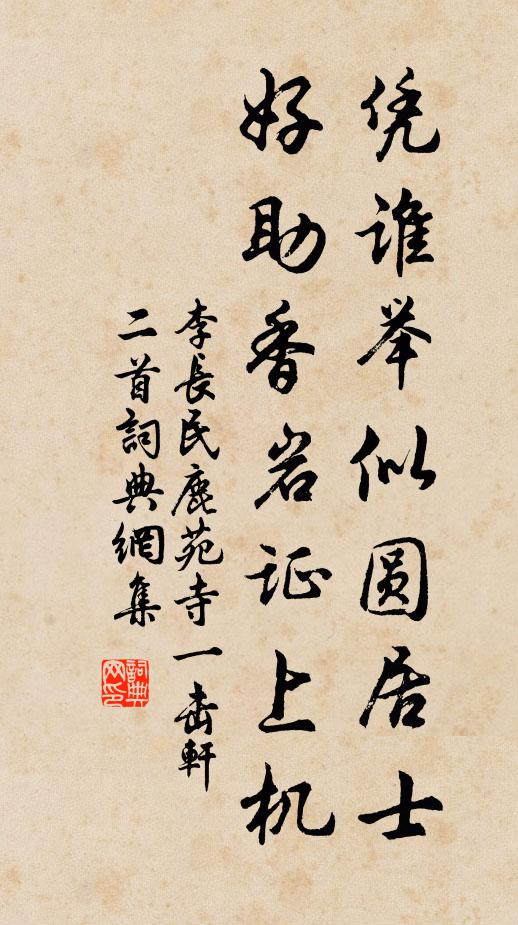 凭谁举似圆居士
好助香岩证上机
李長民鹿苑寺一击軒
二首詞典網集
詞典
网印